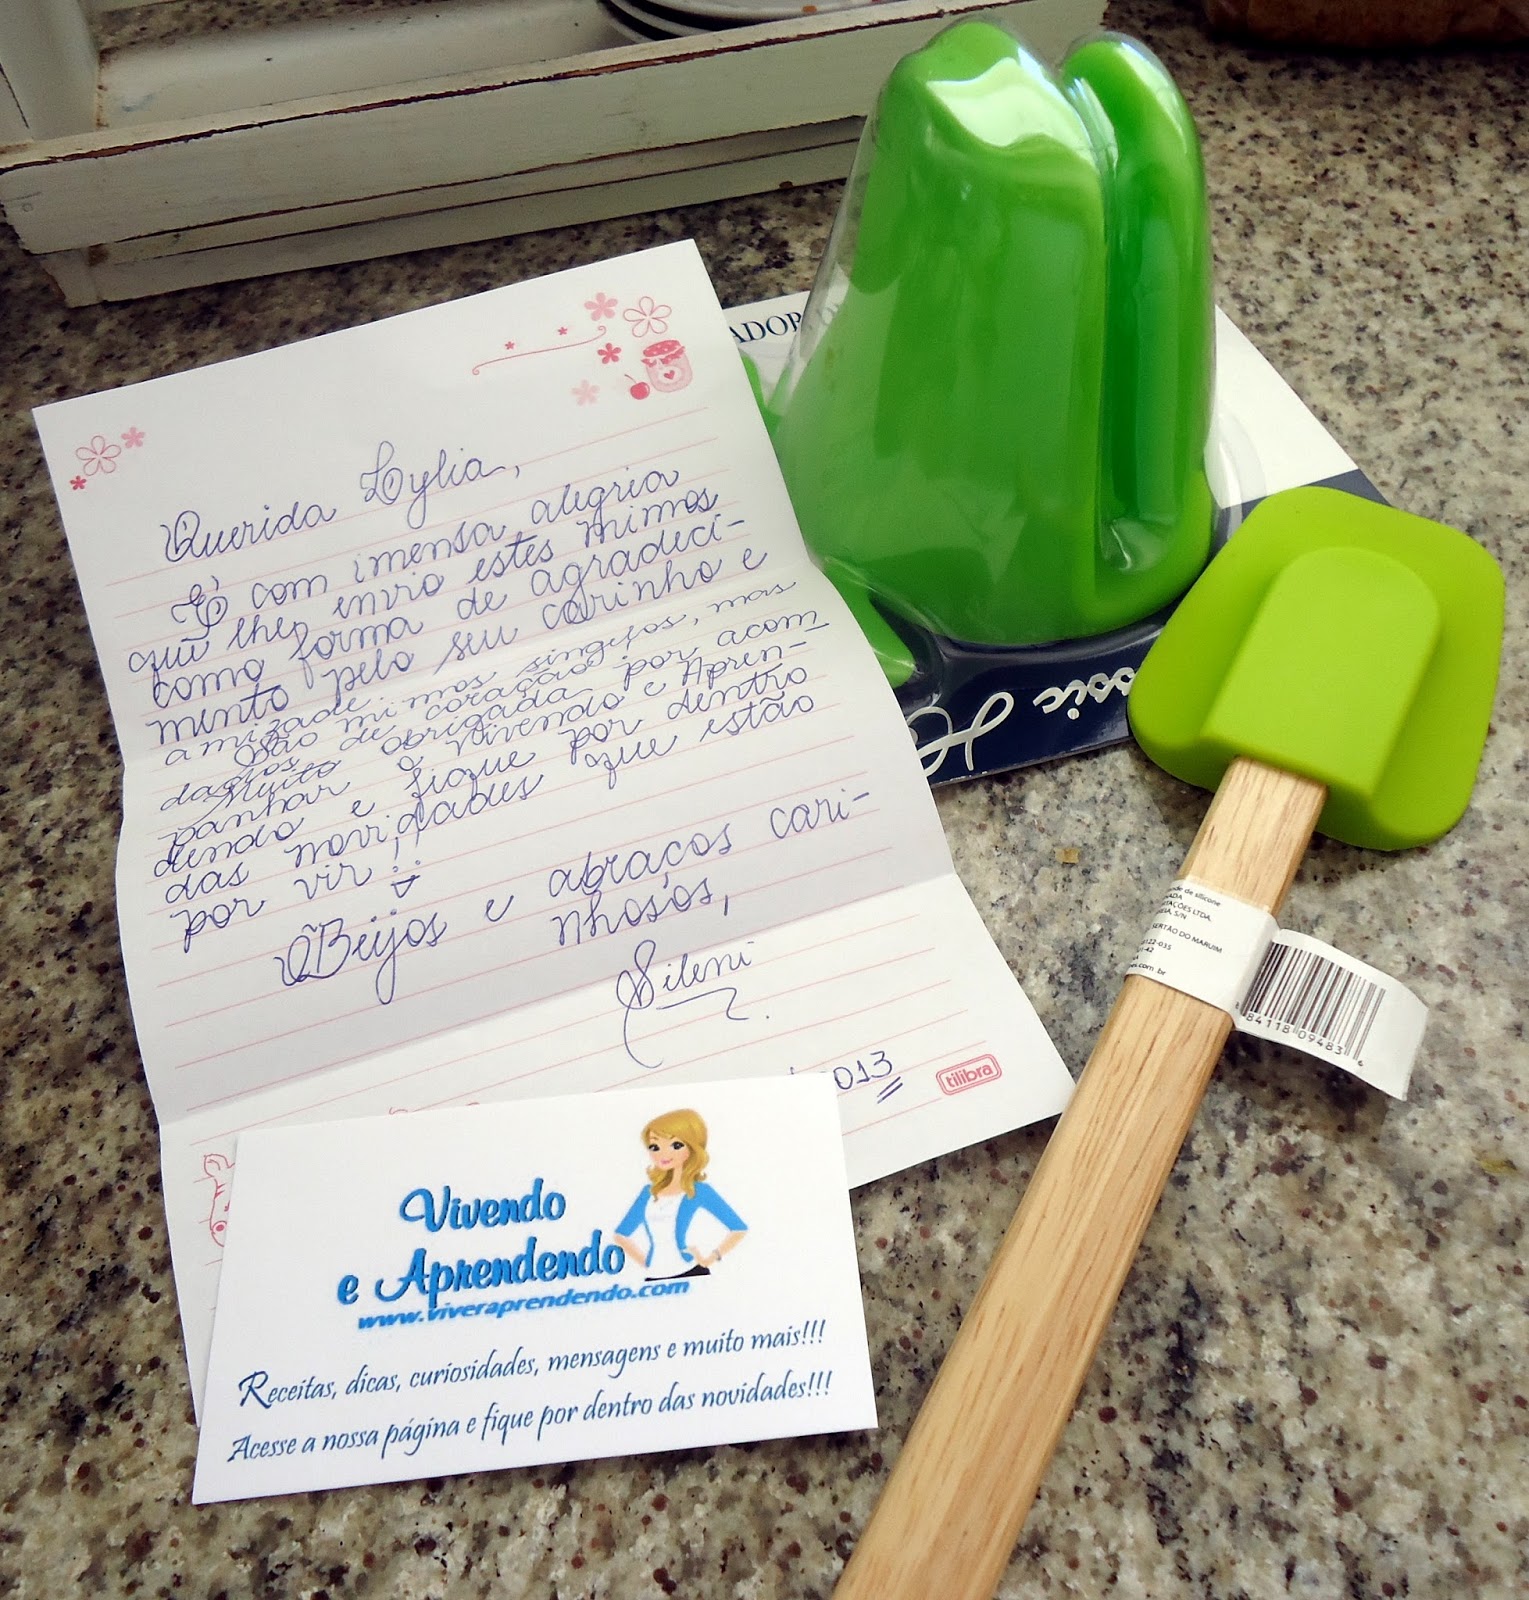 ADOR
Querida Lylia,
É com imensa alegria
que lhe envio estes mimos
como forma de agradeci-
mento pelo seu carinho e
amizade.
São mimos singelos, mas
dados de coração.
Muito obrigada por acom
panhar o Vivendo e Apren-
dendo e fique por dentro
das novidades que estão
por vir!
Beijos e abraços cari-
nhosos,
Sileni
013
tilibra
Vivendo
e Aprendendo
www.viveraprendendo.com
Receitas, dicas, curiosidades, mensagens e muito mais!!!
Acesse a nossa página e fique por dentro das novidades!!!
ssic
de silicone
TAÇÕES LTDA.
S/N
SERTÃO DO MARUIM
122-035
-42
es.com.br
84118 09483